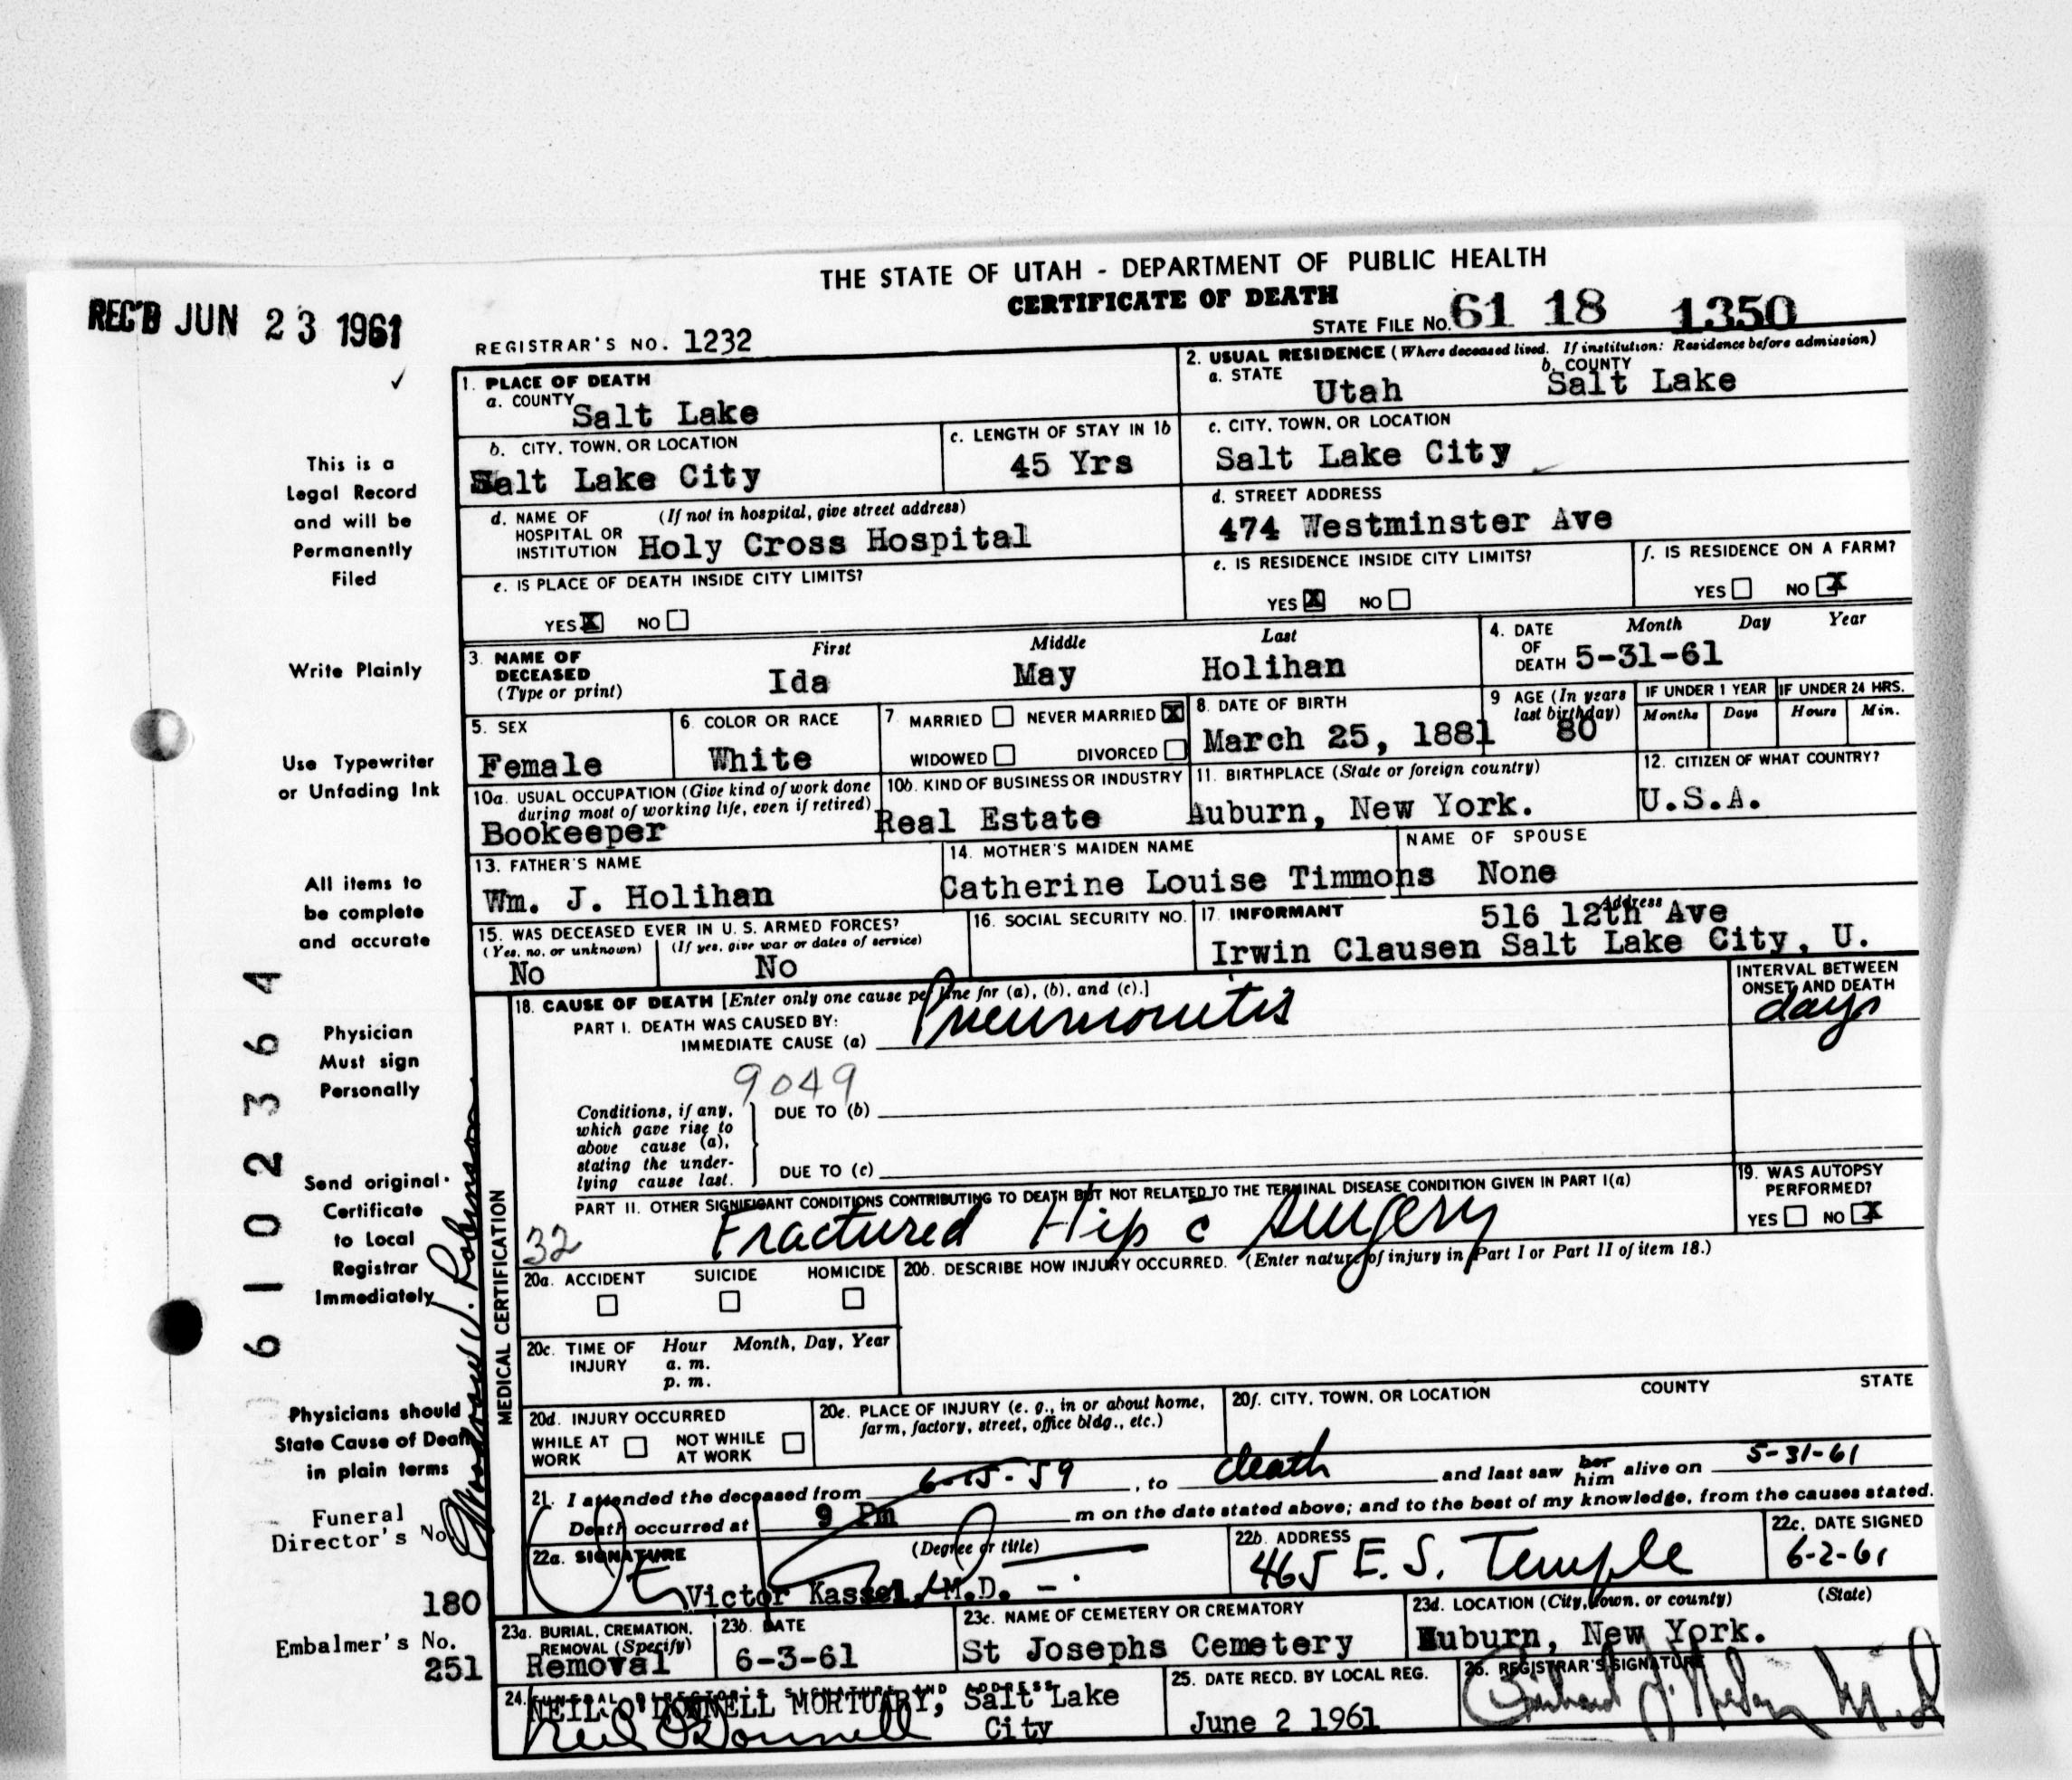 THE STATE OF UTAH - DEPARTMENT OF PUBLIC HEALTH
CERTIFICATE OF DEATH
REC'D JUN 23 1961
REGISTRAR'S NO. 1232
STATE FILE NO. 61 18 1350
1. PLACE OF DEATH
a. COUNTY Salt Lake
2. USUAL RESIDENCE (Where deceased lived. If institution: Residence before admission)
a. STATE Utah b. COUNTY Salt Lake
b. CITY, TOWN, OR LOCATION Salt Lake City
c. LENGTH OF STAY IN 1b 45 Yrs
c. CITY, TOWN, OR LOCATION Salt Lake City
d. NAME OF HOSPITAL OR INSTITUTION (If not in hospital, give street address) Holy Cross Hospital
d. STREET ADDRESS 474 Westminster Ave
e. IS PLACE OF DEATH INSIDE CITY LIMITS?
YES X NO
e. IS RESIDENCE INSIDE CITY LIMITS?
YES X NO
f. IS RESIDENCE ON A FARM?
YES NO X
3. NAME OF DECEASED (Type or print)
First Middle Last
Ida May Holihan
4. DATE OF DEATH Month Day Year
5-31-61
5. SEX Female
6. COLOR OR RACE White
7. MARRIED NEVER MARRIED X
WIDOWED DIVORCED
8. DATE OF BIRTH March 25, 1881
9 AGE (In years last birthday) 80
IF UNDER 1 YEAR Months Days
IF UNDER 24 HRS. Hours Min.
10a. USUAL OCCUPATION (Give kind of work done during most of working life, even if retired)
Bookeeper
10b. KIND OF BUSINESS OR INDUSTRY
Real Estate
11. BIRTHPLACE (State or foreign country)
Auburn, New York.
12. CITIZEN OF WHAT COUNTRY?
U.S.A.
13. FATHER'S NAME
Wm. J. Holihan
14. MOTHER'S MAIDEN NAME
Catherine Louise Timmons
NAME OF SPOUSE
None
15. WAS DECEASED EVER IN U. S. ARMED FORCES?
(Yes, no, or unknown) (If yes, give war or dates of service)
No No
16. SOCIAL SECURITY NO.
17. INFORMANT Address
516 12th Ave
Irwin Clausen Salt Lake City, U.
18. CAUSE OF DEATH [Enter only one cause per line for (a), (b), and (c).]
PART I. DEATH WAS CAUSED BY:
IMMEDIATE CAUSE (a) Pneumonitis
INTERVAL BETWEEN ONSET AND DEATH
days
9049
Conditions, if any, which gave rise to above cause (a), stating the underlying cause last.
DUE TO (b)
DUE TO (c)
PART II. OTHER SIGNIFICANT CONDITIONS CONTRIBUTING TO DEATH BUT NOT RELATED TO THE TERMINAL DISEASE CONDITION GIVEN IN PART I(a)
32 Fractured Hip c̄ surgery
19. WAS AUTOPSY PERFORMED?
YES NO X
20a. ACCIDENT SUICIDE HOMICIDE
20b. DESCRIBE HOW INJURY OCCURRED. (Enter nature of injury in Part I or Part II of item 18.)
20c. TIME OF INJURY Hour Month, Day, Year
a. m.
p. m.
20d. INJURY OCCURRED
WHILE AT WORK NOT WHILE AT WORK
20e. PLACE OF INJURY (e. g., in or about home, farm, factory, street, office bldg., etc.)
20f. CITY, TOWN, OR LOCATION COUNTY STATE
21. I attended the deceased from 6-15-59, to death and last saw her him alive on 5-31-61
Death occurred at 9 Pm m on the date stated above; and to the best of my knowledge, from the causes stated.
22a. SIGNATURE (Degree or title)
Victor Kassel, M.D.
22b. ADDRESS
465 E. S. Temple
22c. DATE SIGNED
6-2-61
23a. BURIAL, CREMATION, REMOVAL (Specify)
Removal
23b. DATE
6-3-61
23c. NAME OF CEMETERY OR CREMATORY
St Josephs Cemetery
23d. LOCATION (City, town, or county) (State)
Auburn, New York.
24. FUNERAL DIRECTOR'S SIGNATURE AND ADDRESS
NEIL O'DONNELL MORTUARY, Salt Lake City
Neil O'Donnell
25. DATE RECD. BY LOCAL REG.
June 2 1961
26. REGISTRAR'S SIGNATURE
MEDICAL CERTIFICATION
This is a
Legal Record
and will be
Permanently
Filed
Write Plainly
Use Typewriter
or Unfading Ink
All items to
be complete
and accurate
Physician
Must sign
Personally
Send original
Certificate
to Local
Registrar
Immediately
Physicians should
State Cause of Death
in plain terms
Funeral
Director's No.
180
Embalmer's No.
251
6102364
Robinson